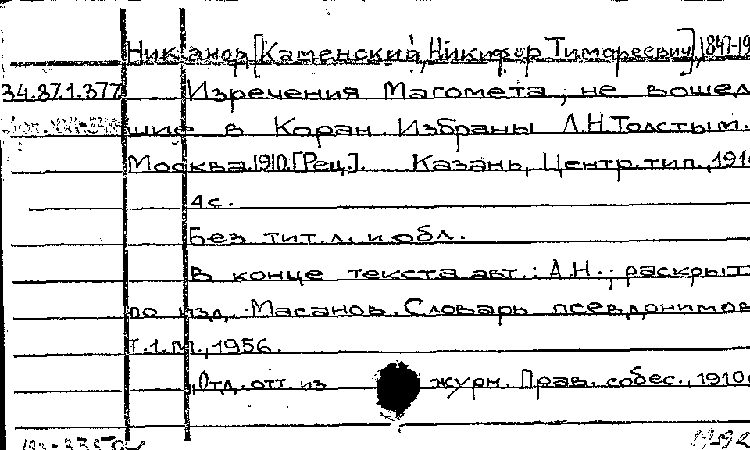 Никанор [Каменский, Никифор Тимофеевич], 1847-19
34.37.1.377 Изречения Магомета, не вошед
шие в Коран. Избраны Л.Н.Толстым.
Москва.1910.[Рец.]. Казань, Центр.тип., 191
4с.
Без тит.л. и обл.
В конце текста авт.: А.Н.; раскрыт
по изд. Масанов. Словарь псевдонимов
Т.1.М., 1956.
Отд. отт. из журн. Прав. собес., 1910